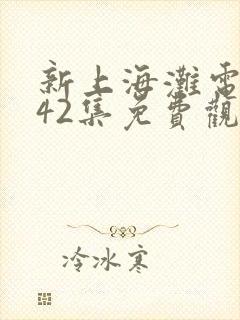 新上海灘電
42集免費觀
冷冰寒